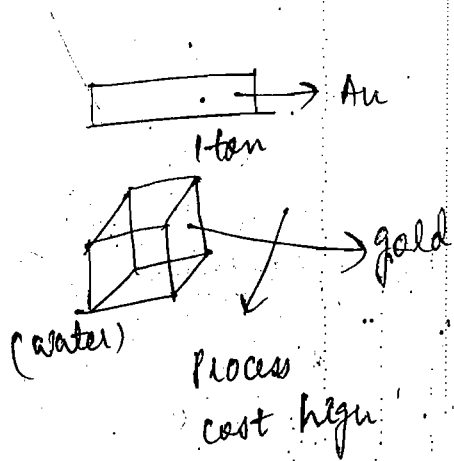 Au
1 ton
gold
(water)
Process
cost high